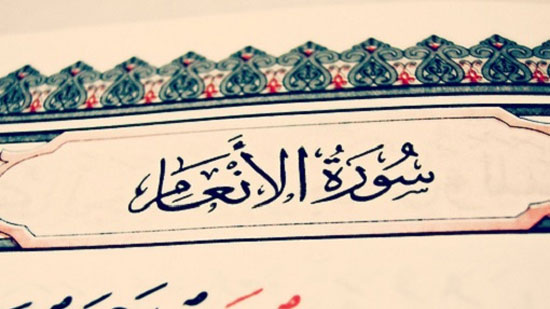 سُورَةُ الأَنْعَامِ